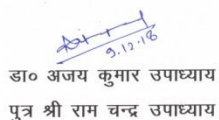 9.12.18
डा० अजय कुमार उपाध्याय
पुत्र श्री राम चन्द्र उपाध्याय